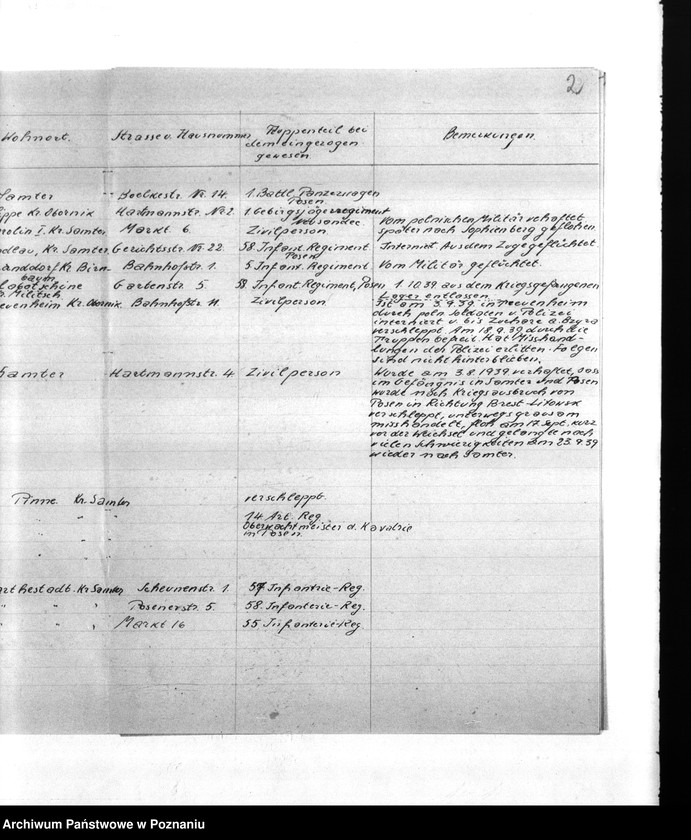 2
Wohnort. Strasse u. Hausnummer Truppenteil bei
dem eingezogen
gewesen. Bemerkungen.
Samter Boelkestr. Nr. 14. 1. Batl. Panzerwagen
Posen
Kr. Obornik Hartmannstr. Nr 2. 1. Gebirgsjägerregiment
Markt 6. Zivilperson Vom polnischen Militär verhaftet
später nach Sophienberg geflohen.
Kr. Samter, Gerichtsstr. Nr. 22. 58. Infant. Regiment
Posen Interniert. Aus dem Zuge geflüchtet.
Kr. Birn-
baum Bahnhofstr. 1. 5. Infant. Regiment Vom Militär geflüchtet.
Gartenstr. 5. 58. Infant. Regiment, Posen 1. 10. 39 aus dem Kriegsgefangenen
Lager entlassen.
Militsch
Kr. Obornik Bahnhofstr. 11. Zivilperson Ist am 3. 9. 39. in Neuenheim
durch poln. Soldaten u. Polizei
interniert u. bis
verschleppt. Am 18. 9. 39 durch die
Truppen befreit. Hat Misshand-
lungen der Polizei erlitten. Folgen
sind nicht hinterblieben.
Samter Hartmannstr. 4 Zivilperson Wurde am 3. 8. 1939 verhaftet, sass
im Gefängnis in Samter und Posen
wurde nach Kriegsausbruch von
Posen in Richtung Brest-Litowsk
verschleppt, unterwegs grausam
misshandelt, floh am 17. Sept. kurz
vor der Weichsel und gelangte nach
vielen Schwierigkeiten am 23. 9. 39
wieder nach Samter.
Pinne Kr. Samter verschleppt.
" " 14. Art. Reg.
" " Oberwachtmeister d. Kavallrie
in Posen.
Kr. Samter Scheunenstr. 1. 57 Infantrie-Reg.
" " " Posenerstr. 5. 58. Infanterie-Reg.
" " " Markt 16 55 Infanterie-Reg.
Archiwum Państwowe w Poznaniu